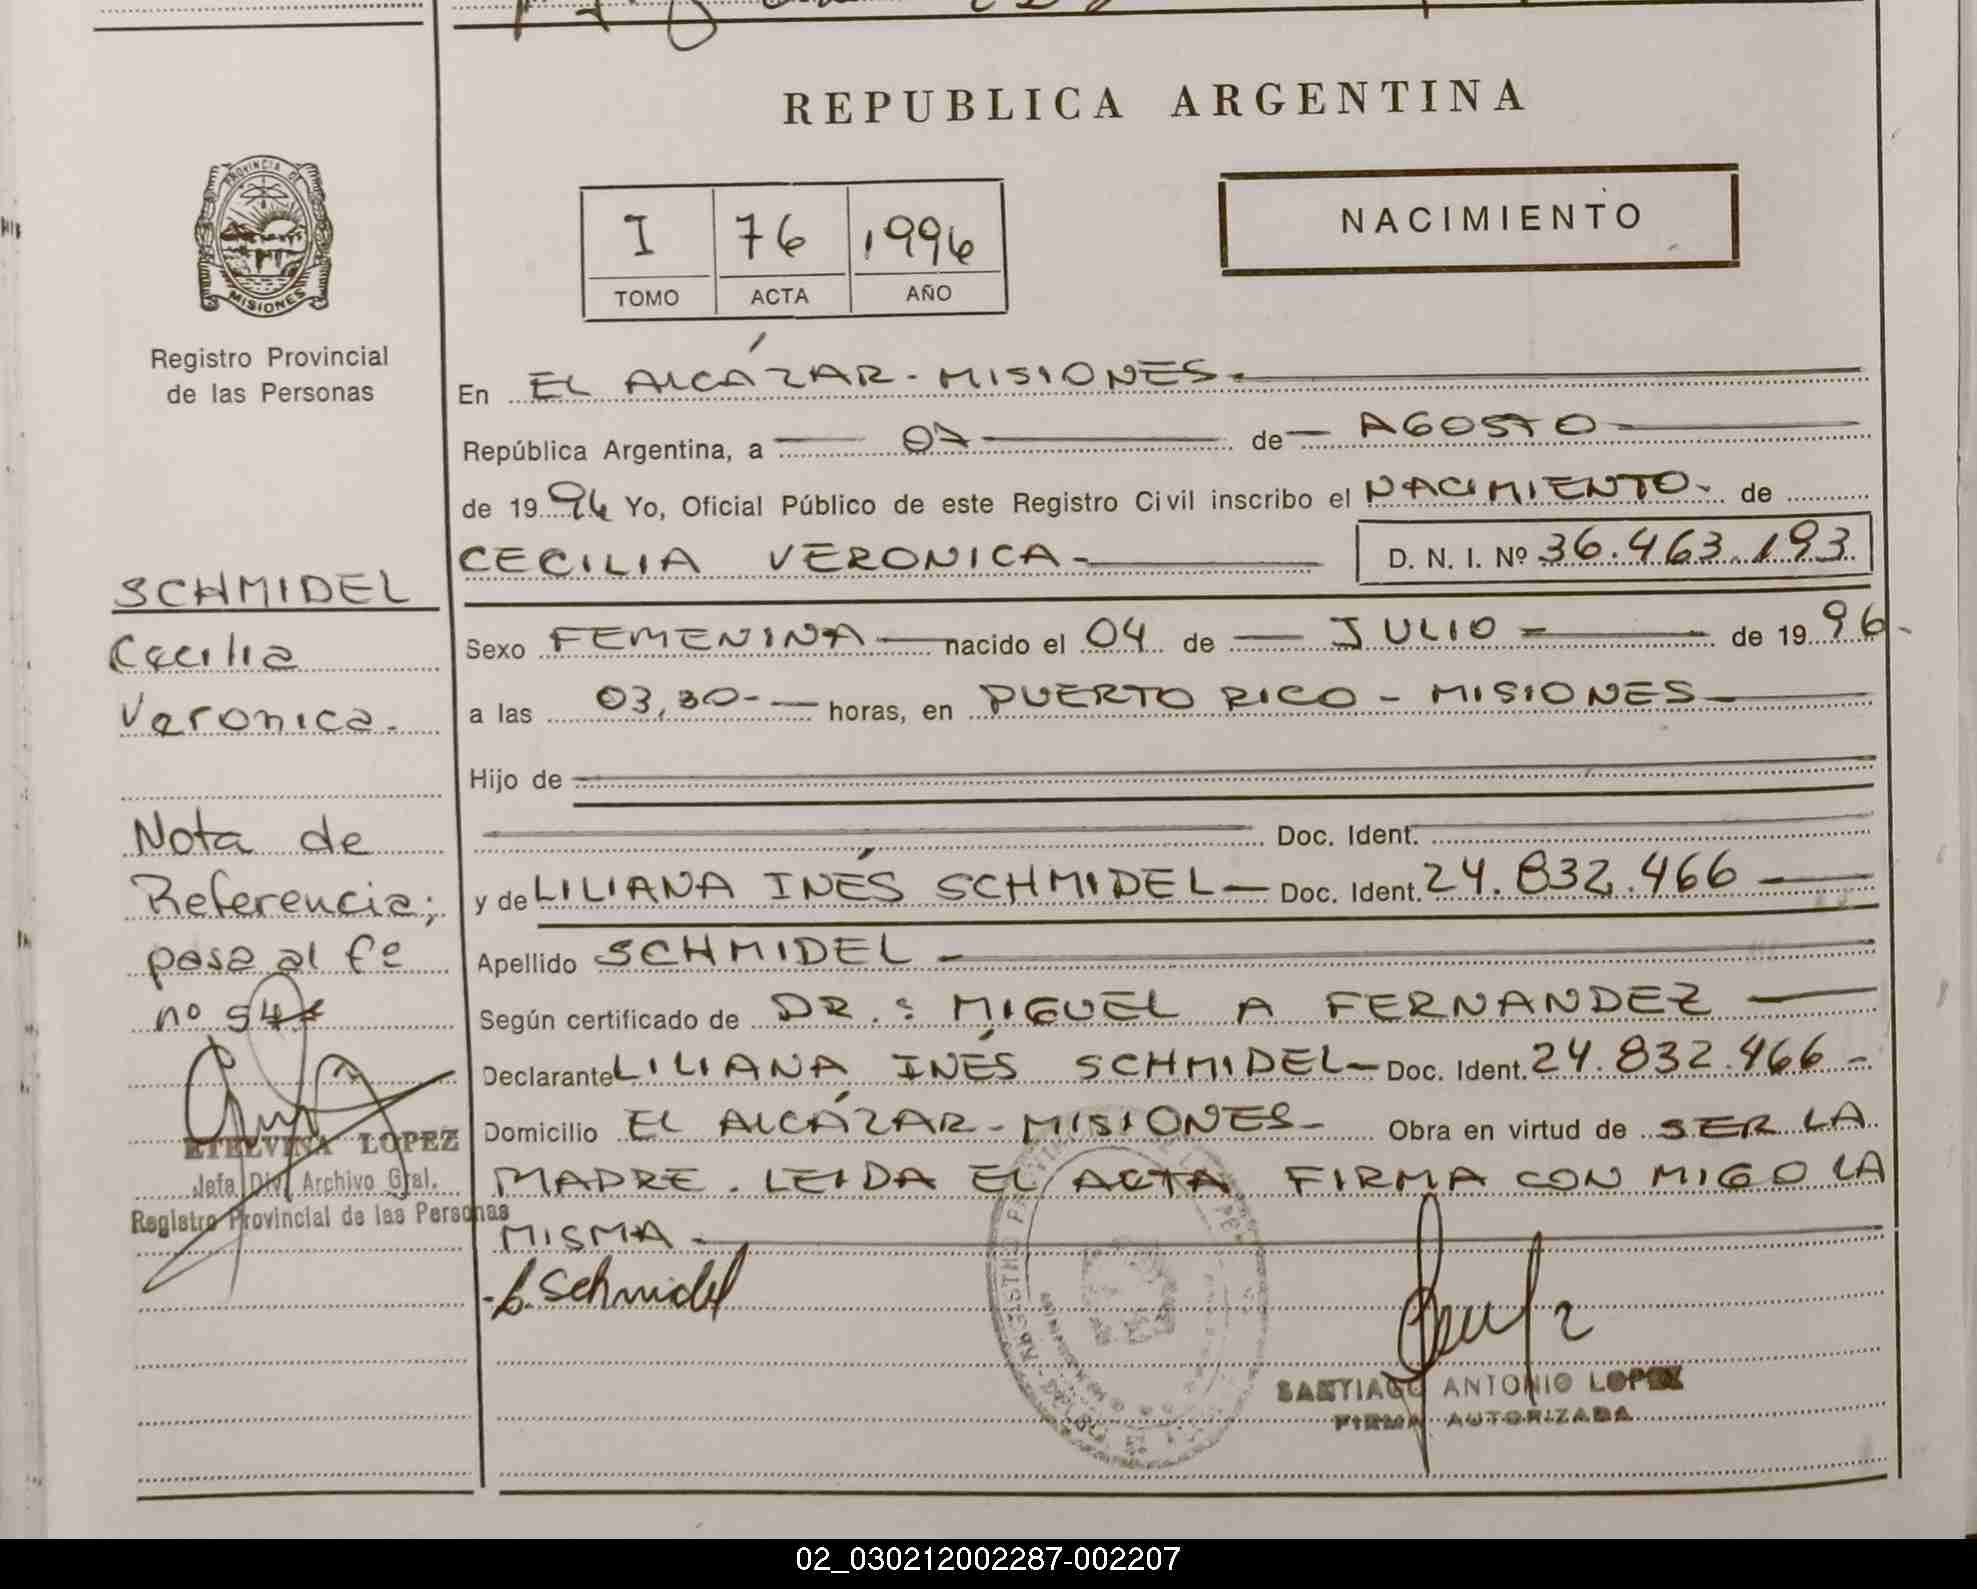 REPUBLICA ARGENTINA
PROVINCIA DE
MISIONES
Registro Provincial
de las Personas
I 76 1996
TOMO ACTA AÑO
NACIMIENTO
En EL ALCÁZAR - MISIONES
República Argentina, a 07 de AGOSTO
de 1996 Yo, Oficial Público de este Registro Civil inscribo el NACIMIENTO - de
CECILIA VERONICA - D. N. I. Nº 36.463.193
Sexo FEMENINA nacido el 04 de JULIO de 1996.
a las 03,30 - horas, en PUERTO RICO - MISIONES
Hijo de
Doc. Ident.
y de LILIANA INÉS SCHMIDEL Doc. Ident. 24.832.466
Apellido SCHMIDEL
Según certificado de DR.: MIGUEL A FERNANDEZ
Declarante LILIANA INÉS SCHMIDEL Doc. Ident. 24.832.466 -
Domicilio EL ALCÁZAR - MISIONES - Obra en virtud de SER LA
MADRE. LEIDA EL ACTA FIRMA CON MIGO LA
MISMA -
L. Schmidel
SANTIAGO ANTONIO LOPEZ
FIRMA AUTORIZADA
SCHMIDEL
Cecilia
Veronica.
Nota de
Referencia;
pasa al fº
nº 54
ETELVINA LOPEZ
Jefa Div. Archivo Gral.
Registro Provincial de las Personas
02_030212002287-002207